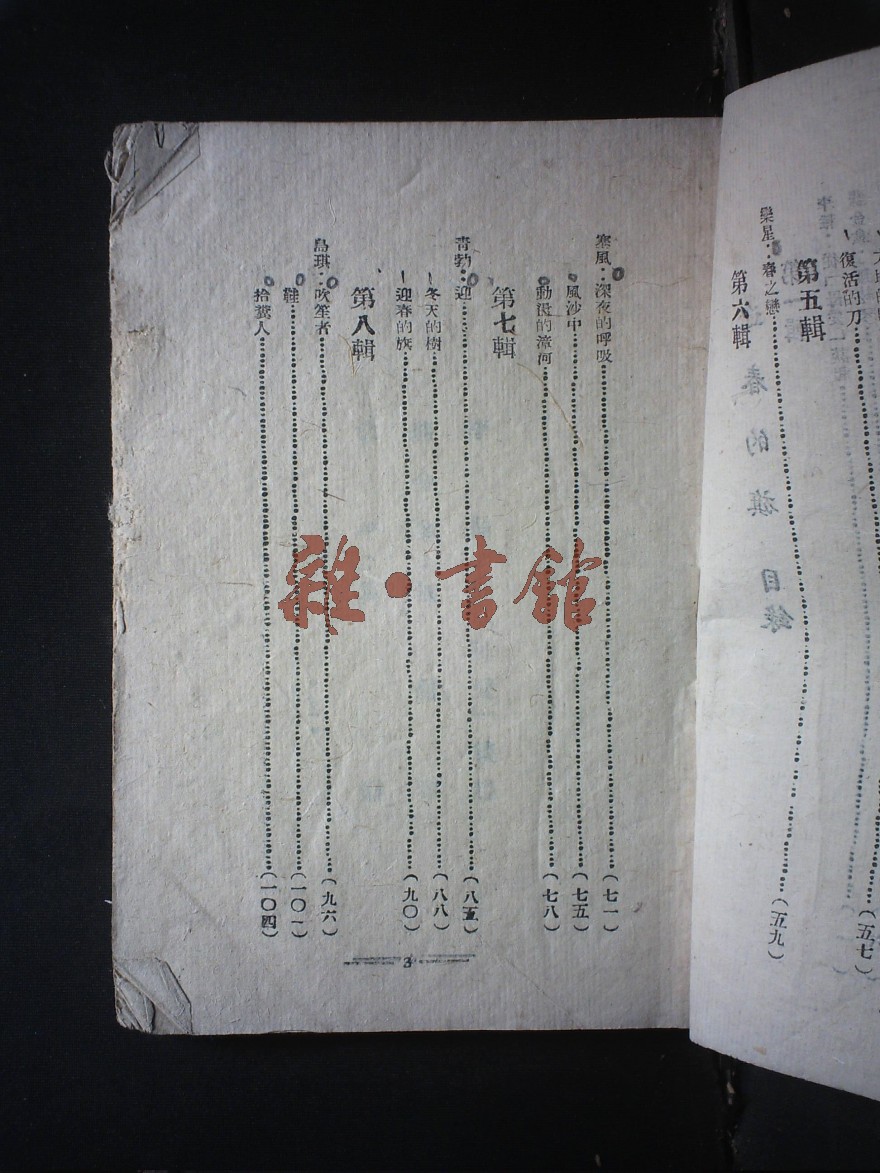 復活的刀……(五七)
第五輯
欒星：春之戀……(五九)
第六輯
塞風：深夜的呼吸……(七一)
風沙中……(七五)
動盪的漳河……(七八)
第七輯
青勃：迎……(八五)
冬天的樹……(八八)
迎春的旗……(九〇)
第八輯
吹笙者……(九六)
鞋……(一〇一)
拾糞人……(一〇四)
3
春的旗 目錄
雜·書館